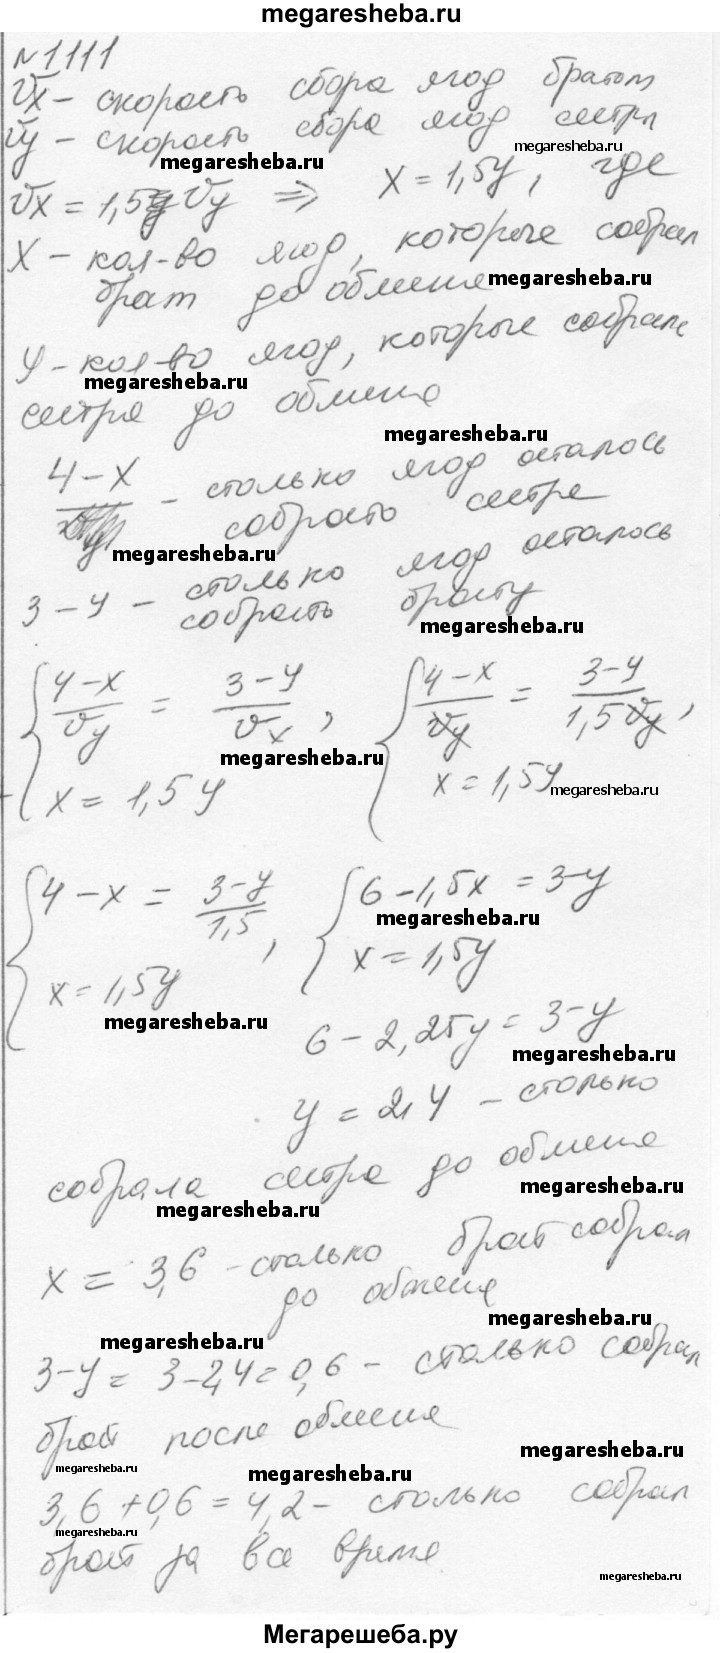 megaresheba.ru
№1111
Vx - скорость сбора ягод братом
Vy - скорость сбора ягод сестры
megaresheba.ru
megaresheba.ru
Vx = 1,5 Vy ⇒ x = 1,5y, где
X - кол-во ягод, которые собрал
брат до обмена
megaresheba.ru
y - кол-во ягод, которые собрала
megaresheba.ru
сестра до обмена
megaresheba.ru
4-x - столько ягод осталось
собрать сестре
megaresheba.ru
3-y - столько ягод осталось
собрать брату
megaresheba.ru
{ (4-x)/Vy = (3-y)/Vx , { (4-x)/Vy = (3-y)/(1,5Vy) ,
megaresheba.ru
x = 1,5y x = 1,5y
megaresheba.ru
{ 4-x = (3-y)/1,5 , { 6-1,5x = 3-y
megaresheba.ru
x = 1,5y x = 1,5y
megaresheba.ru
6-2,25y = 3-y
megaresheba.ru
y = 2,4 - столько
собрала сестра до обмена
megaresheba.ru
megaresheba.ru
x = 3,6 - столько брат собрал
до обмена
megaresheba.ru
megaresheba.ru
3-y = 3-2,4 = 0,6 - столько собрал
брат после обмена
megaresheba.ru
megaresheba.ru
megaresheba.ru
3,6+0,6 = 4,2 - столько собрал
megaresheba.ru
брат за все время
megaresheba.ru
Мегарешеба.ру